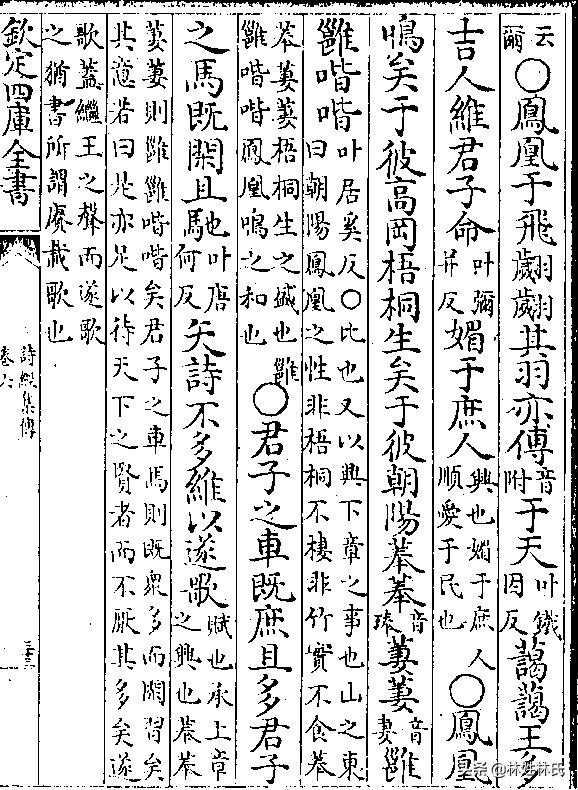 云爾○鳳凰于飛翽翽其羽亦傅音附于天叶鐵因反藹藹王多
吉人維君子命叶彌并反媚于庶人興也媚于庶人順愛于民也○鳳凰
鳴矣于彼高岡梧桐生矣于彼朝陽菶菶音琫萋萋音妻雝
雝喈喈叶居奚反○比也又以興下章之事也山之東曰朝陽鳳凰之性非梧桐不棲非竹實不食菶
菶萋萋梧桐生之盛也雝雝喈喈鳳凰鳴之和也○君子之車既庶且多君子
之馬既閑且馳叶唐何反矢詩不多維以遂歌賦也承上章之興也菶菶
萋萋則雝雝喈喈矣君子之車馬則既衆多而閑習矣其意若曰是亦足以待天下之賢者而不厭其多矣遂
歌蓋繼王之聲而遂歌之猶書所謂賡載歌也
欽定四庫全書
詩經集傳
卷六
头条 @林姓林氏